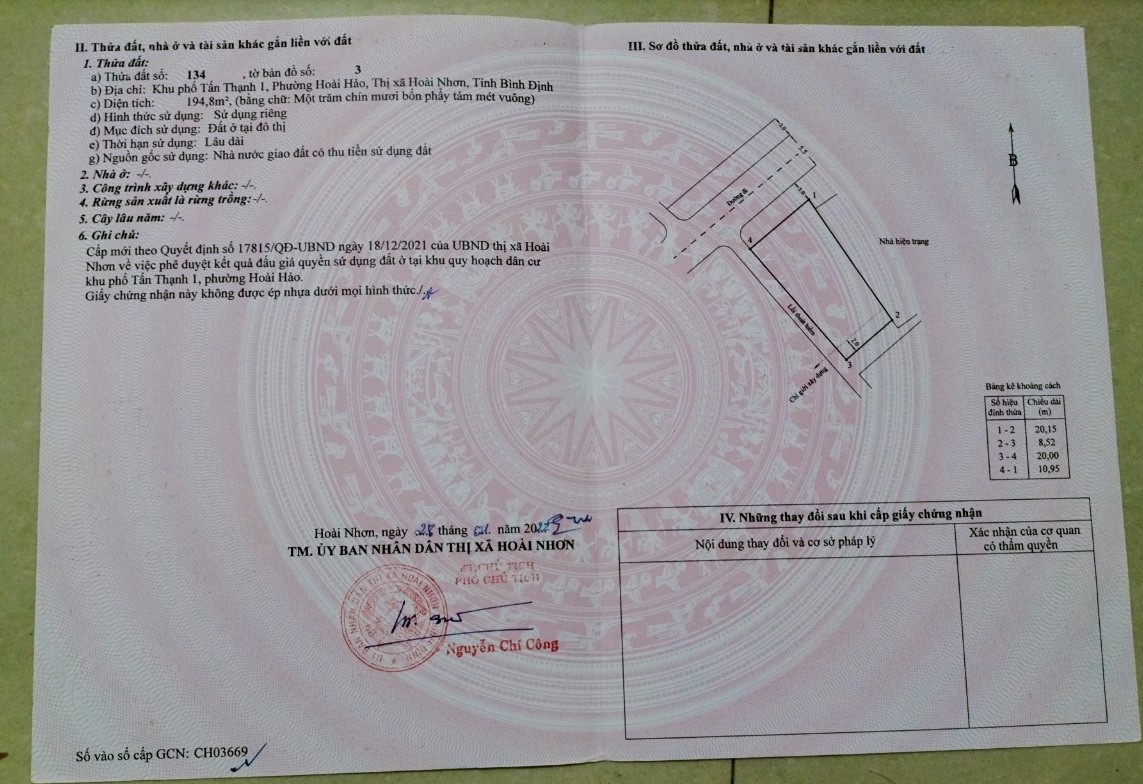 II. Thửa đất, nhà ở và tài sản khác gắn liền với đất
1. Thửa đất:
a) Thửa đất số: 134 , tờ bản đồ số: 3
b) Địa chỉ: Khu phố Tấn Thạnh 1, Phường Hoài Hảo, Thị xã Hoài Nhơn, Tỉnh Bình Định
c) Diện tích: 194,8m², (bằng chữ: Một trăm chín mươi bốn phẩy tám mét vuông)
d) Hình thức sử dụng: Sử dụng riêng
đ) Mục đích sử dụng: Đất ở tại đô thị
e) Thời hạn sử dụng: Lâu dài
g) Nguồn gốc sử dụng: Nhà nước giao đất có thu tiền sử dụng đất
2. Nhà ở: -/-.
3. Công trình xây dựng khác: -/-.
4. Rừng sản xuất là rừng trồng: -/-.
5. Cây lâu năm: -/-.
6. Ghi chú:
Cấp mới theo Quyết định số 17815/QĐ-UBND ngày 18/12/2021 của UBND thị xã Hoài
Nhơn về việc phê duyệt kết quả đấu giá quyền sử dụng đất ở tại khu quy hoạch dân cư
khu phố Tấn Thạnh 1, phường Hoài Hảo.
Giấy chứng nhận này không được ép nhựa dưới mọi hình thức./.
Hoài Nhơn, ngày 28 tháng 01 năm 2022
TM. ỦY BAN NHÂN DÂN THỊ XÃ HOÀI NHƠN
KT.CHỦ TỊCH
PHÓ CHỦ TỊCH
Nguyễn Chí Công
Số vào sổ cấp GCN: CH03669
III. Sơ đồ thửa đất, nhà ở và tài sản khác gắn liền với đất
B
3,0
5,5
Đường đi
3,0
1
4
Nhà hiện trạng
Lối thoát hiểm
2
2,0
3
Chỉ giới xây dựng
Bảng kê khoảng cách
Số hiệu đỉnh thửa Chiều dài (m)
1 - 2 20,15
2 - 3 8,52
3 - 4 20,00
4 - 1 10,95
IV. Những thay đổi sau khi cấp giấy chứng nhận
Nội dung thay đổi và cơ sở pháp lý
Xác nhận của cơ quan
có thẩm quyền